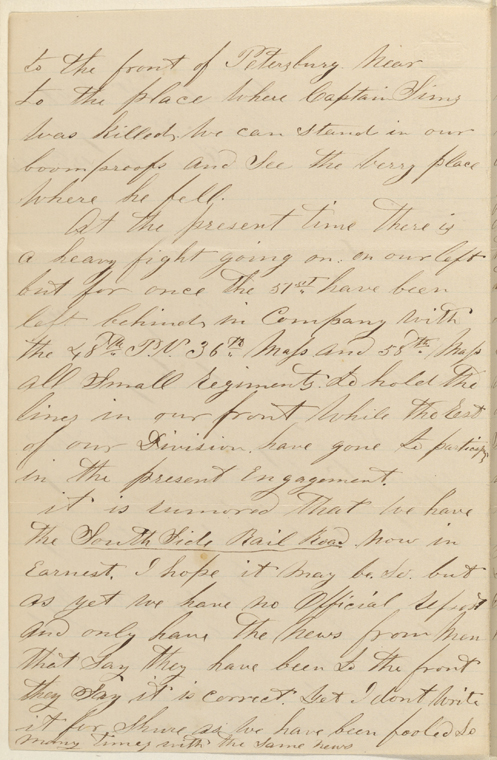 to the front of Petersburg Near
to the place where Captain Sims
was killed, we can stand in our
boomproofs and See the berry place
where he fell.
At the present time there is
a heavy fight going on. on our left
but for once the 51st have been
left behind in Company with
the 48th P.V. 36th Mass and 58th Mass
all Small Regiments. to hold the
lines in our front, while the Rest
of our Division have gone to particip
in the present Engagement.
it is rumored that we have
the South Side Rail Road now in
Earnest. I hope it may be. So. but
as yet we have no Official report
and only have the news from men
that Say they have been to the front
they Say it is correct. Yet I dont write
it for Shure as we have been fooled So
many times with the same news